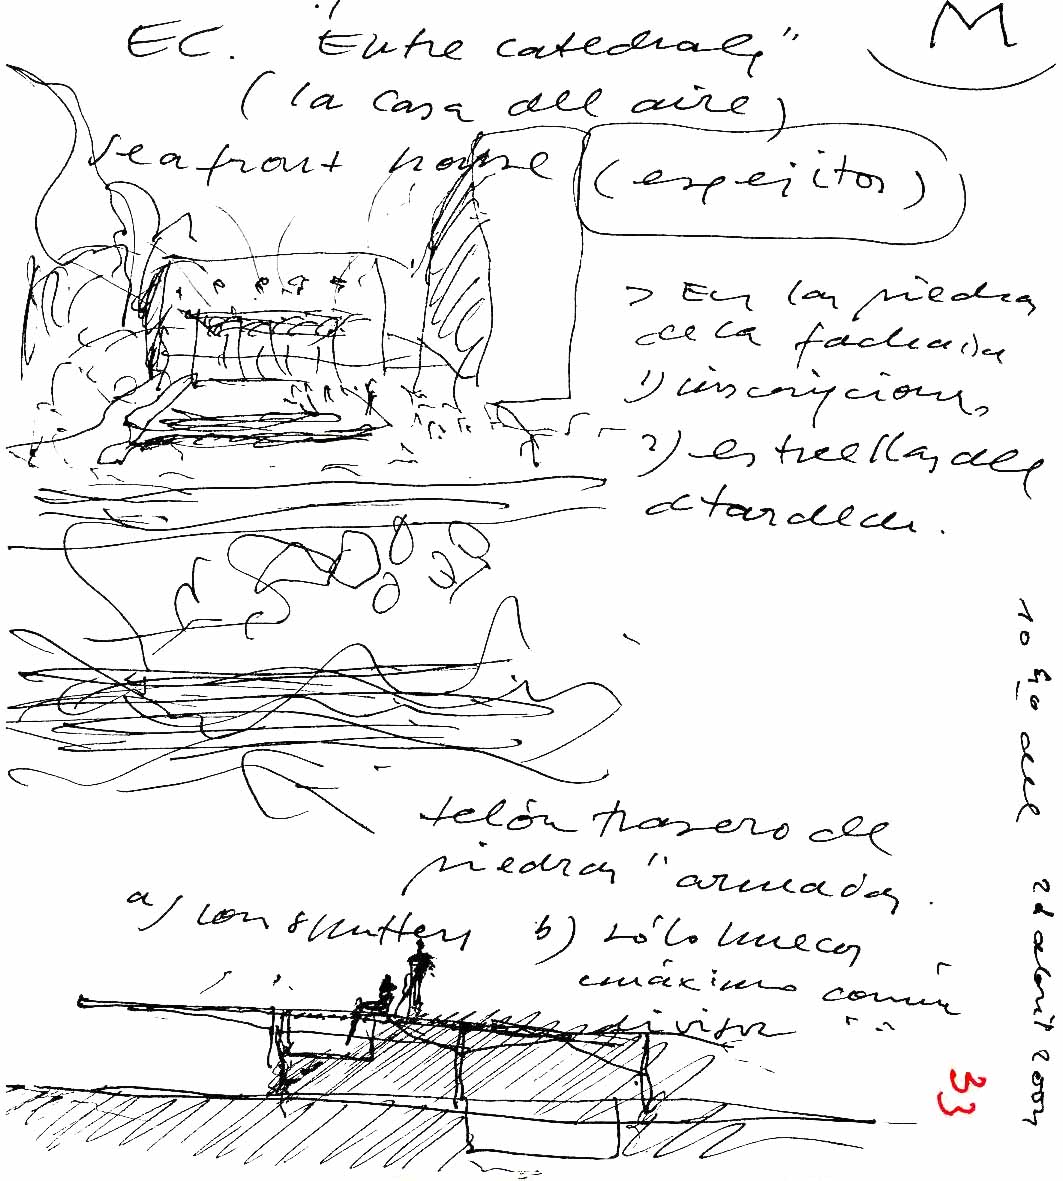 M
EC. "Entre catedrales"
(la casa del aire)
seafront house (espejitos)
> En las piedras
de la fachada
1) inscripciones
2) estrellas del
atardecer.
telón trasero de
piedras "armadas.
a) con shutters b) sólo huecos
máximo común
divisor
10 go del 21 abril 2009
33